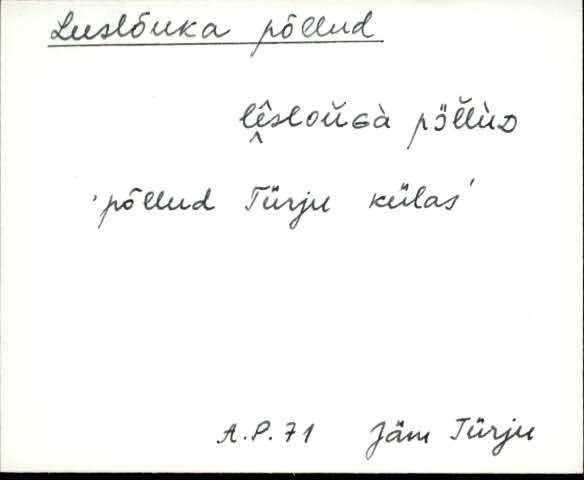 Luslõuka põllud
pöllùD
'põllud Türju külas'
A.P. 71 Jäm Türju